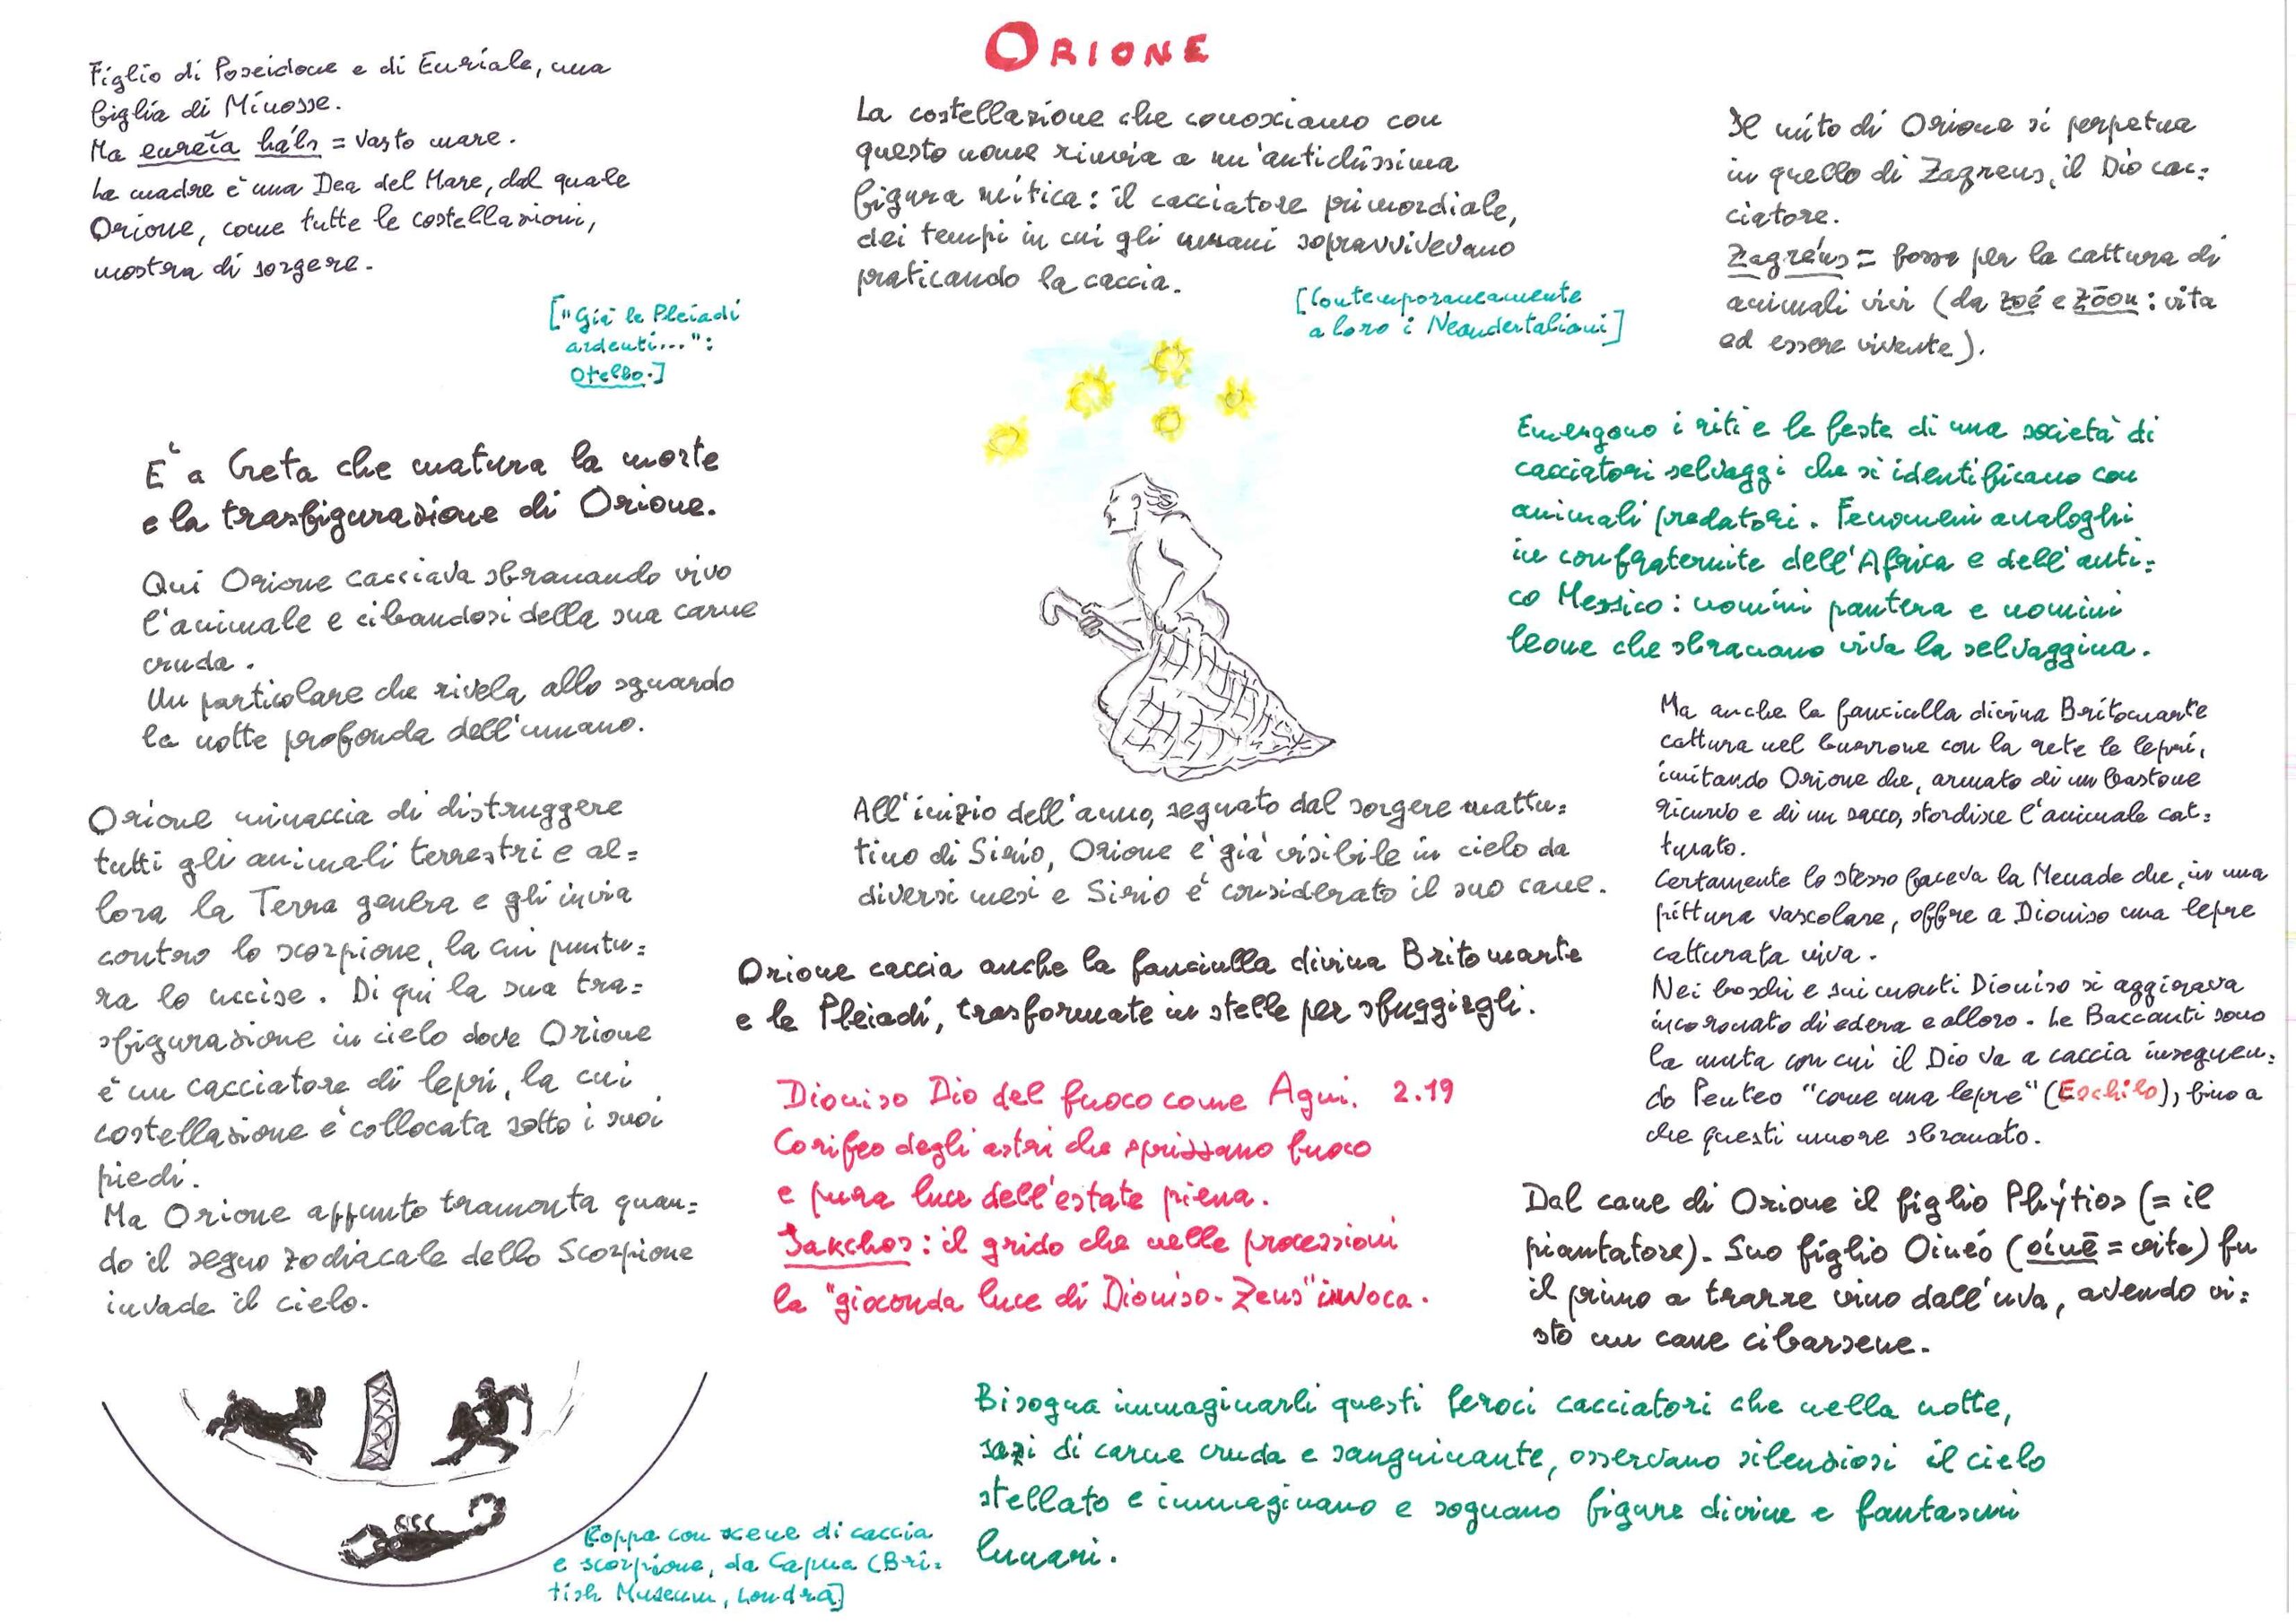 ORIONE
Figlio di Poseidone e di Euriale, una
figlia di Minosse.
Ma eureîa háls = vasto mare.
La madre è una Dea del Mare, dal quale
Orione, come tutte le costellazioni,
mostra di sorgere.
["Già le Pleiadi
ardenti...":
Otello.]
E' a Creta che matura la morte
e la trasfigurazione di Orione.
Qui Orione cacciava sbranando vivo
l'animale e cibandosi della sua carne
cruda.
Un particolare che rivela allo sguardo
la notte profonda dell'umano.
Orione minaccia di distruggere
tutti gli animali terrestri e al=
lora la Terra genera e gli invia
contro lo scorpione, la cui puntu=
ra lo uccise. Di qui la sua tra=
sfigurazione in cielo dove Orione
è un cacciatore di lepri, la cui
costellazione è collocata sotto i suoi
piedi.
Ma Orione appunto tramonta quan=
do il segno zodiacale dello Scorpione
invade il cielo.
[Coppa con scene di caccia
e scorpione, da Capua (Bri=
tish Museum, Londra]
La costellazione che conosciamo con
questo nome rinvia a un'antichissima
figura mitica: il cacciatore primordiale,
dei tempi in cui gli umani sopravvivevano
praticando la caccia.
[Contemporaneamente
a loro i Neandertaliani]
All'inizio dell'anno, segnato dal sorgere mattu=
tino di Sirio, Orione è già visibile in cielo da
diversi mesi e Sirio è considerato il suo cane.
Orione caccia anche la fanciulla divina Britomarte
e le Pleiadi, trasformate in stelle per sfuggirgli.
Dioniso Dio del fuoco come Agni. 2.19
Corifeo degli astri che sprizzano fuoco
e pura luce dell'estate piena.
Iakchos: il grido che nelle processioni
la "gioconda luce di Dioniso-Zeus" invoca.
Il mito di Orione si perpetua
in quello di Zagreus, il Dio cac=
ciatore.
Zagréus = fossa per la cattura di
animali vivi (da zoé e zôon: vita
ed essere vivente).
Emergono i riti e le feste di una società di
cacciatori selvaggi che si identificano con
animali predatori. Fenomeni analoghi
in confraternite dell'Africa e dell'anti=
co Messico: uomini pantera e uomini
leone che sbranano viva la selvaggina.
Ma anche la fanciulla divina Britomarte
cattura nel burrone con la rete le lepri,
imitando Orione che, armato di un bastone
ricurvo e di un sacco, stordisce l'animale cat=
turato.
Certamente lo stesso faceva la Menade che, in una
pittura vascolare, offre a Dioniso una lepre
catturata viva.
Nei boschi e sui monti Dioniso si aggirava
incoronato di edera e alloro. Le Baccanti sono
la muta con cui il Dio va a caccia inseguen=
do Penteo "come una lepre" (Eschilo), fino a
che questi muore sbranato.
Dal cane di Orione il figlio Phýtios (= il
piantatore). Suo figlio Oinéo (oínē = vite) fu
il primo a trarre vino dall'uva, avendo vi=
sto un cane cibarsene.
Bisogna immaginarli questi feroci cacciatori che nella notte,
sazi di carne cruda e sanguinante, osservano silenziosi il cielo
stellato e immaginano e sognano figure divine e fantasmi
lunari.